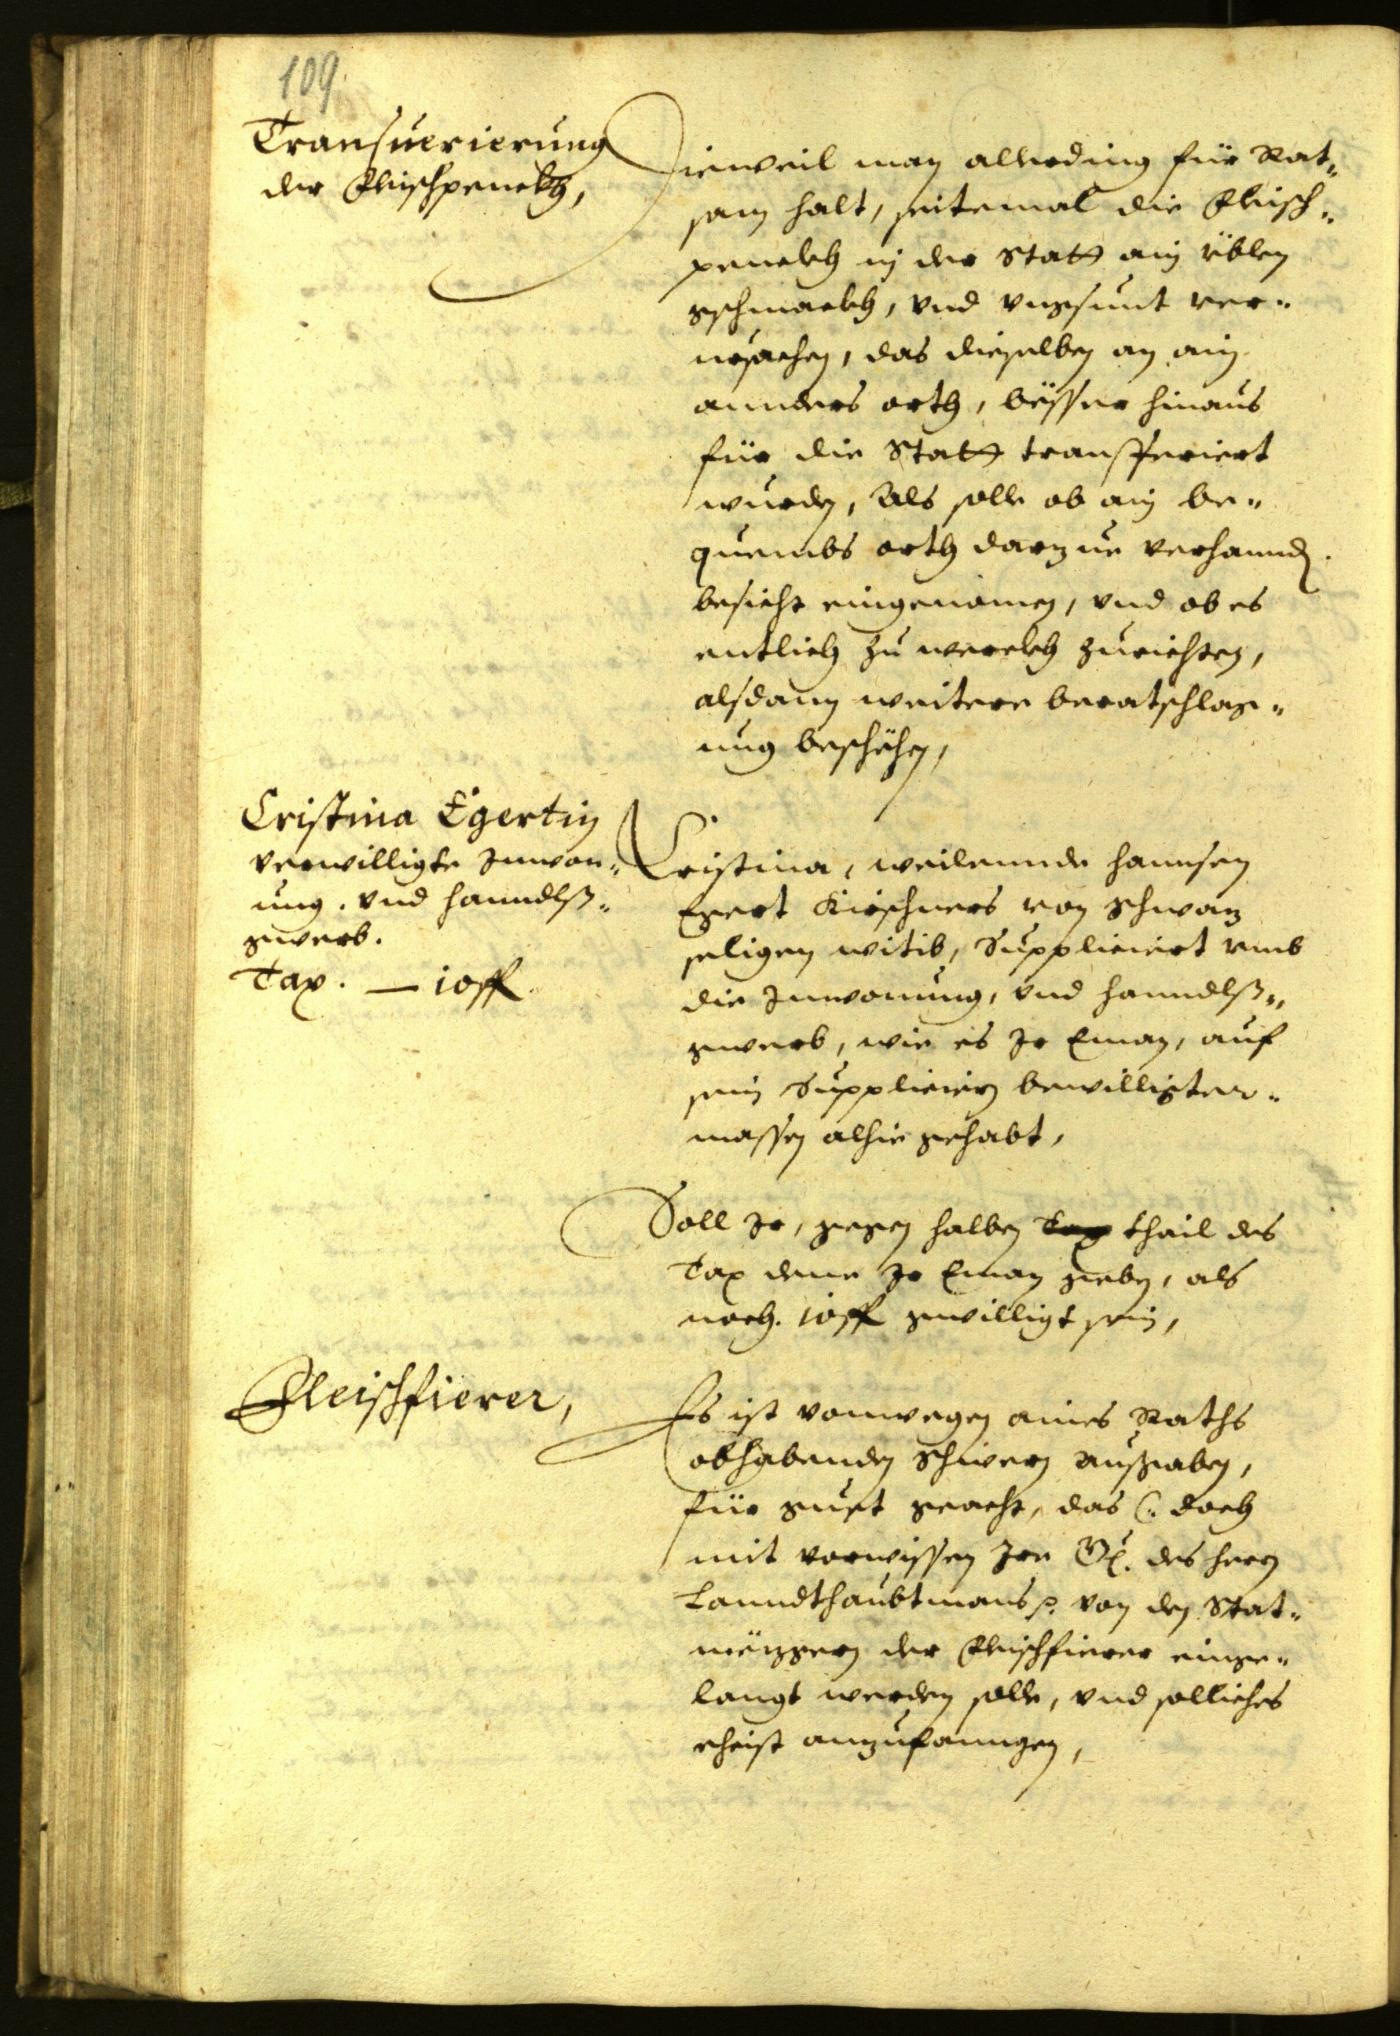 109
Transuerierung
der Fleischpenckh,
Dieweil man allerding für Rat„
sam halt, seitemal die Fleisch„
penckh in der Statt ain üblen
geschmackh, vnd vngesunt ver„
ursachen, das dieselben an ain
annders orth, besser hinaus
für die Statt transferiert
wurden, Als solle ob ain be„
quembs orth darzue verhannden
besicht eingenomen, vnd ob es
entlich zu werckh zurichten,
alsdann weitere beratschlag„
ung beschehen,
Cristina Egertin
verwilligte Inwon„
ung, vnd hanndls„
gwerb.
Tax. — 10 fl.
Cristina, weilennde Hannsen
Egert Kirschners von Schwaz
seligen witib, Suppliciert vmb
die Inwonung, vnd hanndls„
gwerb, wie es Ir Eman, auf
sein Supplicieren bewilligter„
massen alhie gehabt,
Soll Ir, gegen halben Tax thail des
Tax deme Ir Eman geben, als
noch. 10 fl gwilligt sein,
Fleischfierer,
Es ist vonwegen aines Raths
obhabenden schweren außgaben,
für guet geacht, das (: doch
mit vorwissen Irer G. des herrn
Lanndthaubtmans p. von den Stat„
mëzgern der Fleischfierer einge„
langt werden solle, vnd solliches
eheist anzufanngen,